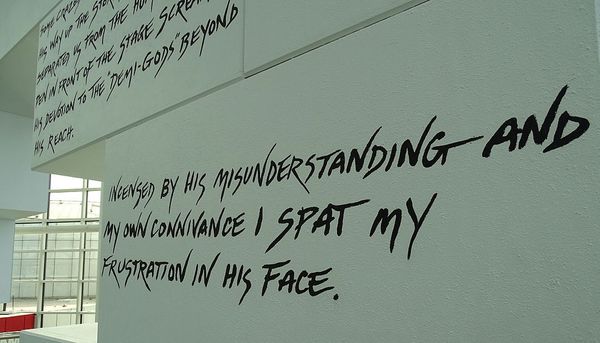 SOME CRAZED
HIS WAY UP THE STEEP
SEPARATED US FROM THE HOW
PEN IN FRONT OF THE STAGE SCREAM
HIS DEVOTION TO THE "DEMI-GODS" BEYOND
HIS REACH.
INCENSED BY HIS MISUNDERSTANDING AND
MY OWN CONNIVANCE I SPAT MY
FRUSTRATION IN HIS FACE.